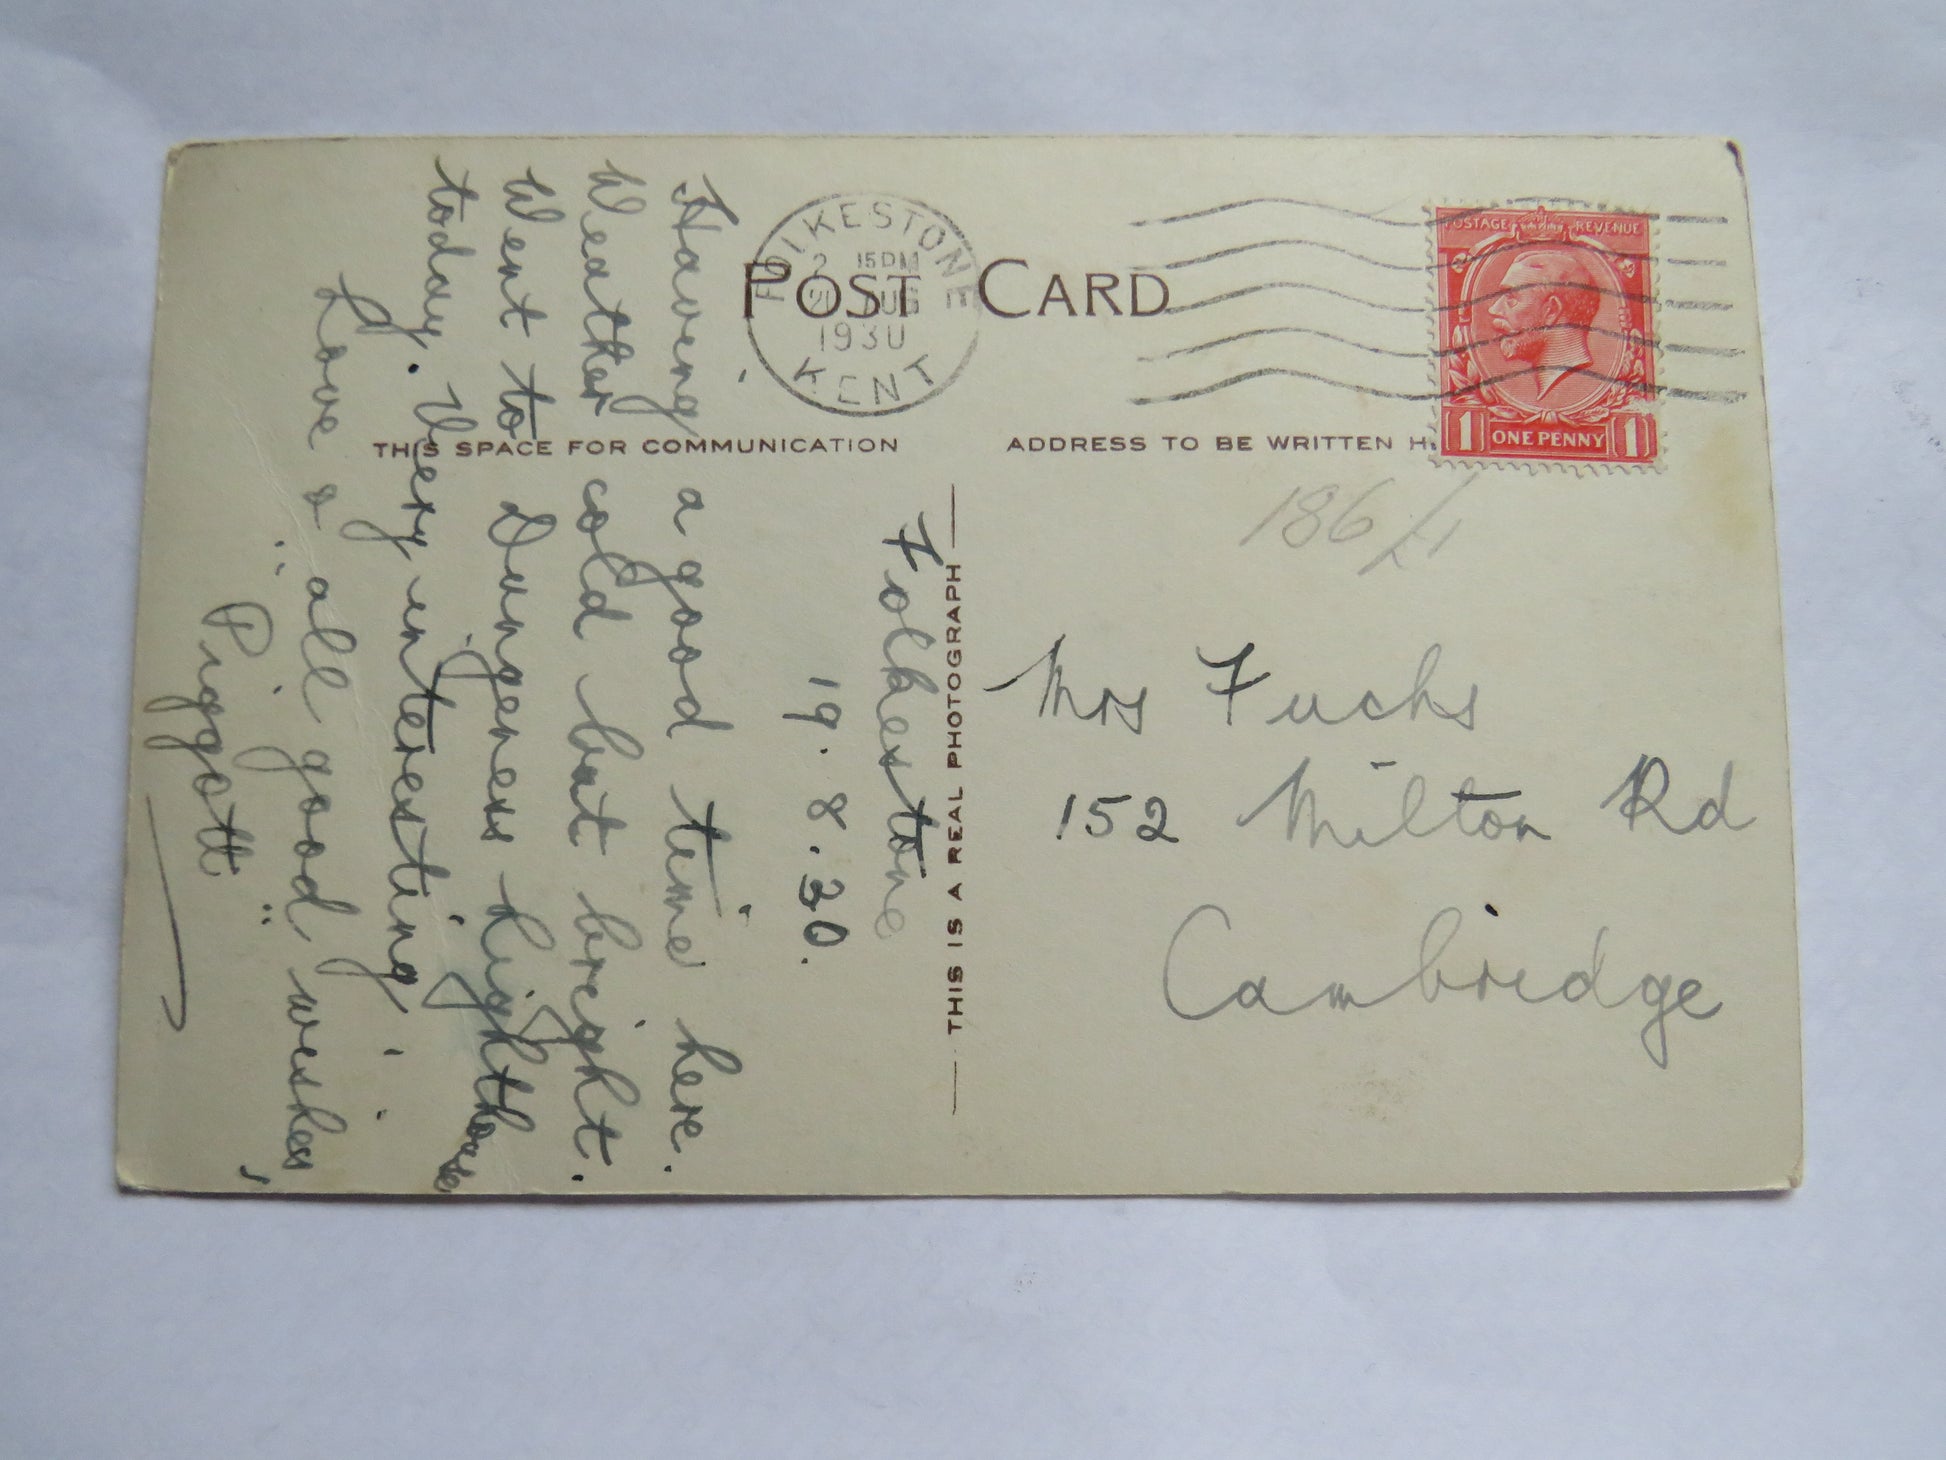 POST CARD
FOLKESTONE
2 15 PM
AUG
1930
KENT
POSTAGE REVENUE
1 ONE PENNY 1
THIS SPACE FOR COMMUNICATION
ADDRESS TO BE WRITTEN H
THIS IS A REAL PHOTOGRAPH
Folkestone
19.8.30.
Having a good time here.
Weather cold but bright.
Went to Dungeness Lighthouse
today. Very interesting
Love & all good wishes,
"Piggott"
186/1
Mrs Fuchs
152 Milton Rd
Cambridge